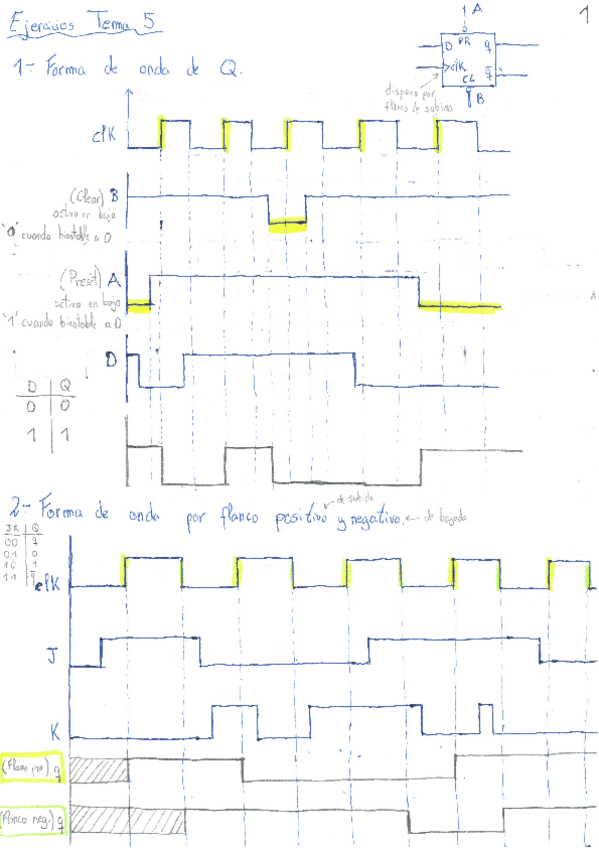 Ejercicios Tema 5
1
A
D PR q
clk q̅
CL
B
disparo por
flanco de subida
1- Forma de onda de Q.
clK
(Clear) B
activa en bajo
"0" cuando biestable a 0
(Preset) A
activa en bajo
"1" cuando biestable a 0
D
D Q
0 0
1 1
2- Forma de onda por flanco positivo y negativo.
de subida
de bajada
JK Q
00 q
01 0
10 1
11 q̅
clK
J
K
(Flanco pos) q
(Flanco neg.) q